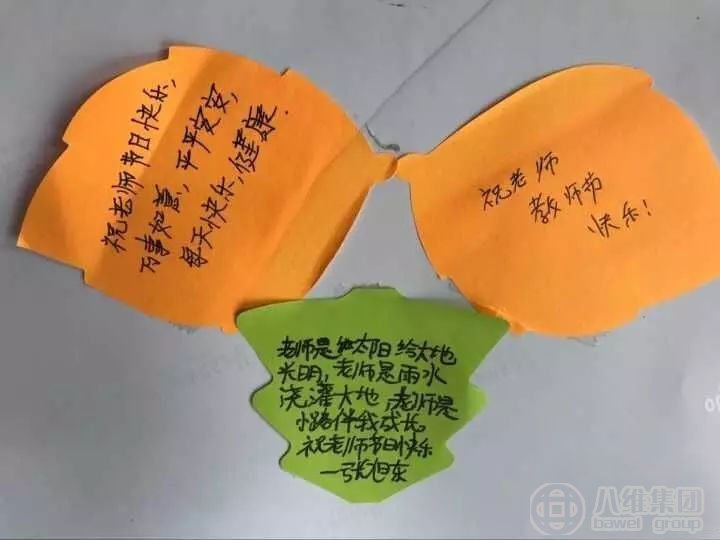 祝老师节日快乐，
万事如意，平平安安，
每天快乐，健康！
祝老师
教师节
快乐！
老师是 太阳给大地
光明，老师是雨水
浇灌大地，老师是
小路伴我成长。
祝老师节日快乐
—张旭东
八维集团
bawei group